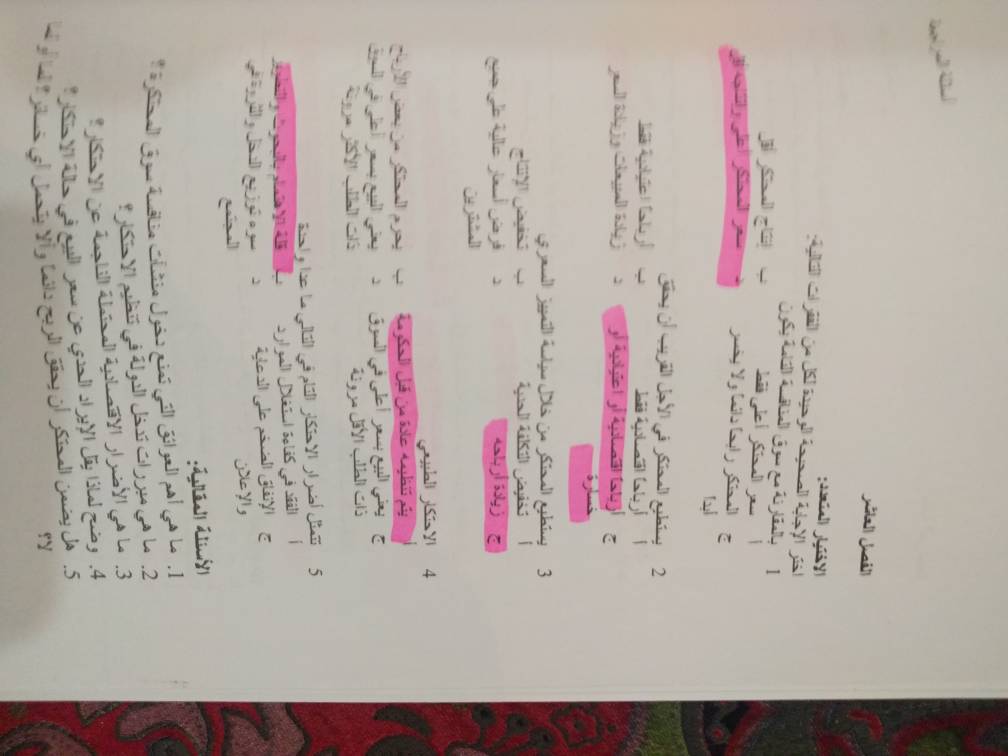 أسئلة المراجعة
الفصل العاشر
الاختيار المتعدد:
اختر الإجابة الصحيحة الوحيدة لكل من الفقرات التالية:
1 بالمقارنة مع سوق المنافسة التامة يكون
أ سعر المحتكر أعلى فقط ب إنتاج المحتكر أقل
ج المحتكر رابحا دائما ولا يخسر د سعر المحتكر أعلى وإنتاجه أقل
أبدا
2 يستطيع المحتكر في الأجل القريب أن يحقق
أ أرباحا اقتصادية فقط ب أرباحا اعتيادية فقط
ج أرباحا اقتصادية أو اعتيادية أو د زيادة المبيعات وزيادة السعر
خسارة
3 يستطيع المحتكر من خلال سياسة التمييز السعري
أ تخفيض التكلفة الحدية ب تخفيض الإنتاج
ج زيادة أرباحه د فرض أسعار عالية على جميع
المشترين
4 الاحتكار الطبيعي
أ يتم تنظيمه عادة من قبل الحكومة ب يحرم المحتكر من بعض الأرباح
ج يعني البيع بسعر أعلى في السوق د يعني البيع بسعر أعلى في السوق
ذات الطلب الأقل مرونة ذات الطلب الأكثر مرونة
5 تتمثل أضرار الاحتكار التام في التالي ما عدا واحدة
أ الفقد في كفاءة استغلال الموارد ب قلة الاهتمام بالبحوث والتطوير
ج الإنفاق الضخم على الدعاية د سوء توزيع الدخل والثروة في
والإعلان المجتمع
الأسئلة المقالية:
1. ما هي أهم العوائق التي تمنع دخول منشآت منافسة سوق المحتكرة؟
2. ما هي مبررات تدخل الدولة في تنظيم الاحتكار؟
3. ما هي الأضرار الاقتصادية المحتملة الناجمة عن الاحتكار؟
4. وضح لماذا يقل الإيراد الحدي عن سعر البيع في حالة الاحتكار؟
5. هل يضمن المحتكر أن يحقق الربح دائما وألا يتحمل أي خسائر؟ لماذا
لا؟